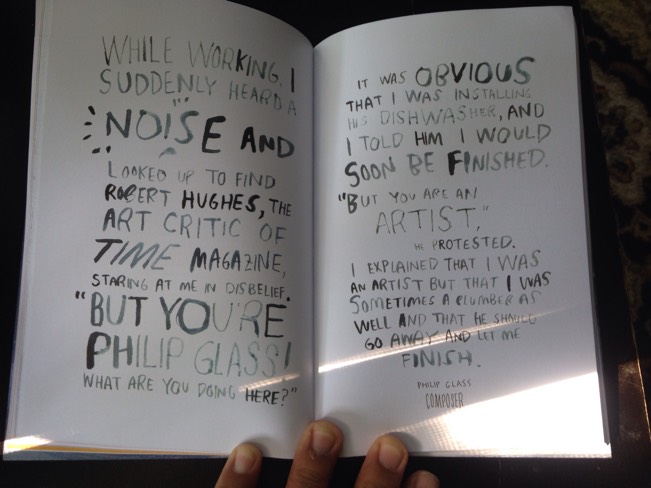 WHILE WORKING, I
SUDDENLY HEARD A
NOISE AND
LOOKED UP TO FIND
ROBERT HUGHES, THE
ART CRITIC OF
TIME MAGAZINE,
STARING AT ME IN DISBELIEF.
"BUT YOU'RE
PHILIP GLASS!
WHAT ARE YOU DOING HERE?"
IT WAS OBVIOUS
THAT I WAS INSTALLING
HIS DISHWASHER, AND
I TOLD HIM I WOULD
SOON BE FINISHED.
"BUT YOU ARE AN
ARTIST,"
HE PROTESTED.
I EXPLAINED THAT I WAS
AN ARTIST BUT THAT I WAS
SOMETIMES A PLUMBER AS
WELL AND THAT HE SHOULD
GO AWAY AND LET ME
FINISH.
PHILIP GLASS
COMPOSER